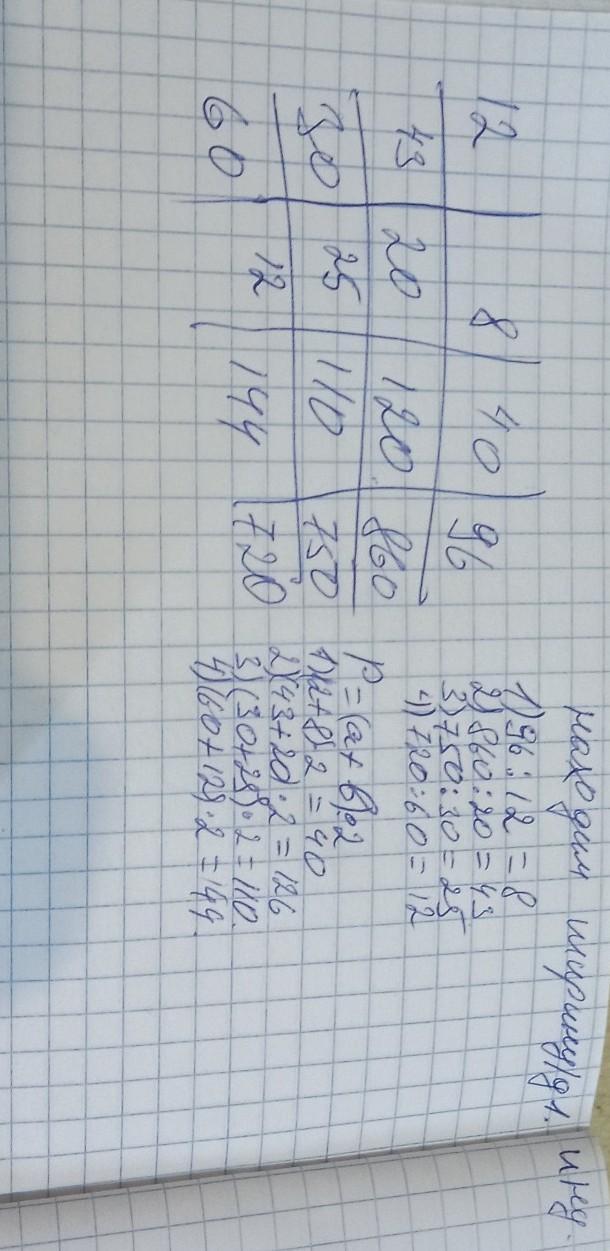 12 8 40 96
43 20 120 860
30 25 110 750
60 12 144 720
находим ширину/дл.
1) 96 : 12 = 8
2) 860 : 20 = 43
3) 750 : 30 = 25
4) 720 : 60 = 12
P = (a + b)·2
1)(12+8)·2 = 40
2)(43+20)·2 = 126
3)(30+25)·2 = 110.
4)(60+12)·2 = 144.